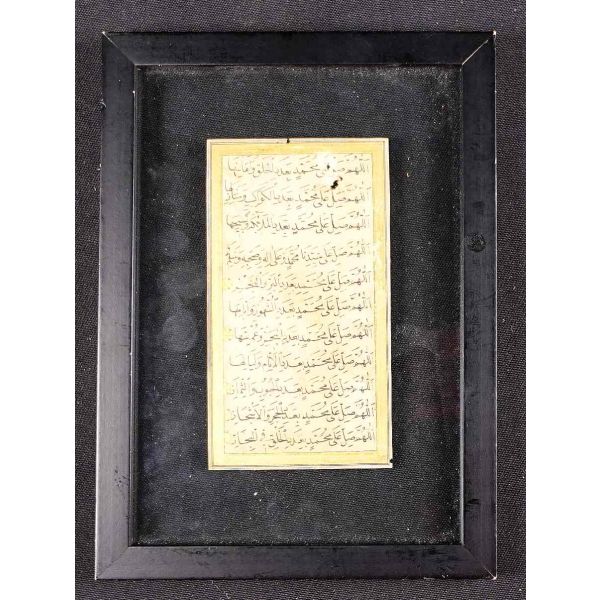 اللهم صل على محمد بعدد الخلق و
اللهم صل على محمد بعدد الكواكب و
اللهم صل على محمد بعدد الملائكة و
اللهم صل على سيدنا محمد وعلى اله وصحبه وسلم
اللهم صل على محمد بعدد
اللهم صل على محمد بعدد الشهور و
اللهم صل على محمد بعدد
اللهم صل على محمد بعدد الايام ولياليها
اللهم صل على محمد بعدد
اللهم صل على محمد بعدد الحجر والاشجار
اللهم صل على محمد بعدد ما خلق في البحار